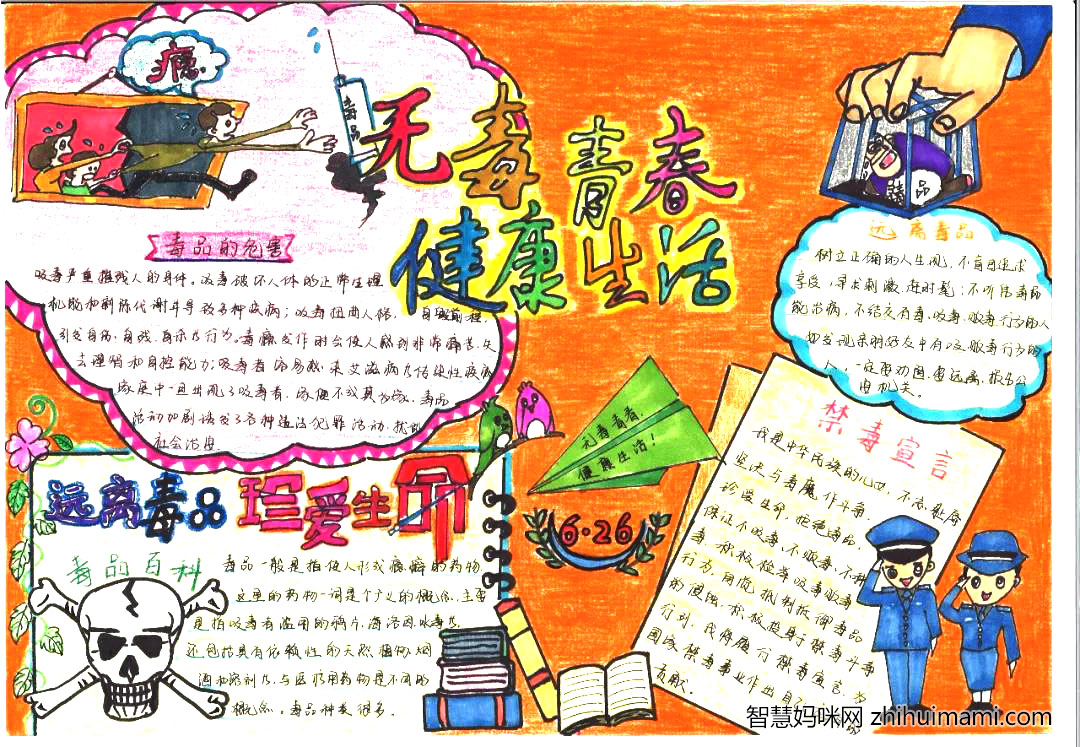 瘾
毒品
无毒青春
健康生活
毒品的危害
吸毒严重摧残人的身体。吸毒破坏人体的正常生理
机能和新陈代谢并导致多种疾病;吸毒扭曲人格,自毁前程,
引发自伤、自残、自杀行为。毒瘾发作时会使人感到非常痛苦,失
去理智和自控能力;吸毒者容易感染艾滋病及传染性疾病
家庭中一旦出现了吸毒者,家便不成其为家。毒品
活动加剧诱发了各种违法犯罪活动,扰乱
社会治安。
远离毒品
树立正确的人生观,不盲目追求
享受,寻求刺激,赶时髦;不听信毒品
能治病,不结交有毒、吸毒、贩毒行为的人
如发现亲朋好友中有吸、贩毒行为的
人,一定要劝阻,要远离,报告公
安机关。
无毒青春,
健康生活!
6·26
禁毒宣言
我是中华民族的
坚决与毒魔作斗争,
珍爱生命,拒绝毒品,
保证不吸毒、不贩毒、不种
毒,积极检举吸毒贩毒
行为,自觉抵制抵御毒品
的侵蚀,积极投身于禁毒斗争
行列,我将履行禁毒宣言,为
国家禁毒事业作出自己的
贡献。
远离毒品 珍爱生命
毒品百科
毒品一般是指使人形成瘾癖的药物,
这里的药物一词是个广义的概念,主要
是指吸毒者滥用的鸦片、海洛因、冰毒等,
还包括具有依赖性的天然植物、烟、
酒和溶剂等,与医疗用药物是不同的
概念。毒品种类很多。
智慧妈咪网 zhihuimami.com